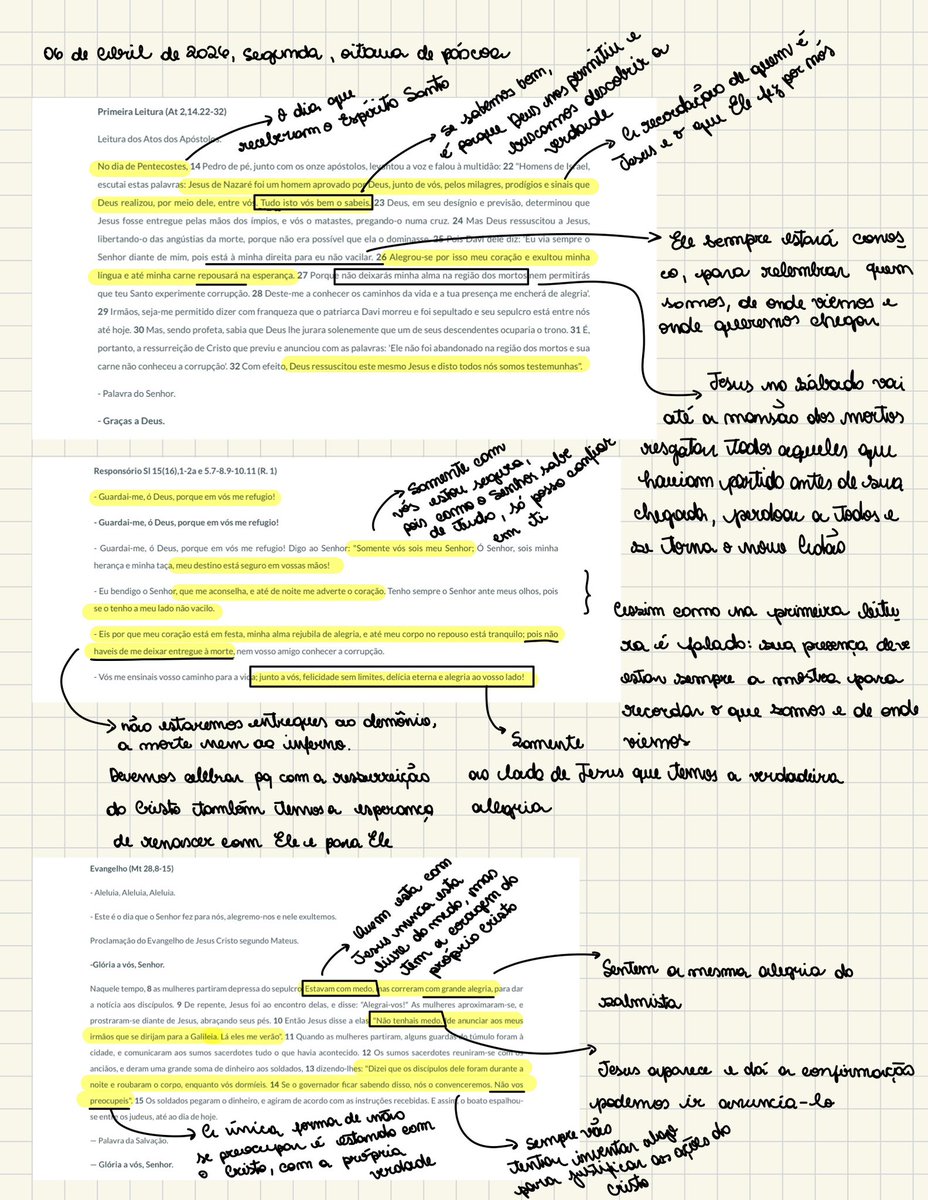 06 de Abril de 2026, segunda, oitava de páscoa
Primeira Leitura (At 2,14.22-32)
Leitura dos Atos dos Apóstolos.
O dia que
receberam o Espírito Santo
Se sabemos bem,
é porque Deus nos permitiu e
buscamos descobrir a
verdade
A recordação de quem é
Jesus e o que Ele fez por nós
No dia de Pentecostes, 14 Pedro de pé, junto com os onze apóstolos, levantou a voz e falou à multidão: 22 "Homens de Israel,
escutai estas palavras: Jesus de Nazaré foi um homem aprovado por Deus, junto de vós, pelos milagres, prodígios e sinais que
Deus realizou, por meio dele, entre vós. Tudo isto vós bem o sabeis. 23 Deus, em seu desígnio e previsão, determinou que
Jesus fosse entregue pelas mãos dos ímpios, e vós o matastes, pregando-o numa cruz. 24 Mas Deus ressuscitou a Jesus,
libertando-o das angústias da morte, porque não era possível que ela o dominasse. 25 Pois Davi dele diz: 'Eu via sempre o
Senhor diante de mim, pois está à minha direita para eu não vacilar. 26 Alegrou-se por isso meu coração e exultou minha
língua e até minha carne repousará na esperança. 27 Porque não deixarás minha alma na região dos mortos nem permitirás
que teu Santo experimente corrupção. 28 Deste-me a conhecer os caminhos da vida e a tua presença me encherá de alegria'.
29 Irmãos, seja-me permitido dizer com franqueza que o patriarca Davi morreu e foi sepultado e seu sepulcro está entre nós
até hoje. 30 Mas, sendo profeta, sabia que Deus lhe jurara solenemente que um de seus descendentes ocuparia o trono. 31 É,
portanto, a ressurreição de Cristo que previu e anunciou com as palavras: 'Ele não foi abandonado na região dos mortos e sua
carne não conheceu a corrupção'. 32 Com efeito, Deus ressuscitou este mesmo Jesus e disto todos nós somos testemunhas".
- Palavra do Senhor.
- Graças a Deus.
Ele sempre estará conos
co, para relembrar quem
somos, de onde viemos e
onde queremos chegar
Jesus no sábado vai
até a mansão dos mortos
resgatar todos aqueles que
haviam partido antes de sua
chegada, perdoou a todos e
se torna o novo Adão
Responsório Sl 15(16),1-2a e 5.7-8.9-10.11 (R. 1)
- Guardai-me, ó Deus, porque em vós me refugio!
- Guardai-me, ó Deus, porque em vós me refugio!
Somente com
vós estou segura,
pois como o Senhor sabe
de tudo, só posso confiar
em ti
- Guardai-me, ó Deus, porque em vós me refugio! Digo ao Senhor: "Somente vós sois meu Senhor; Ó Senhor, sois minha
herança e minha taça, meu destino está seguro em vossas mãos!
- Eu bendigo o Senhor, que me aconselha, e até de noite me adverte o coração. Tenho sempre o Senhor ante meus olhos, pois
se o tenho a meu lado não vacilo.
- Eis por que meu coração está em festa, minha alma rejubila de alegria, e até meu corpo no repouso está tranquilo; pois não
haveis de me deixar entregue à morte, nem vosso amigo conhecer a corrupção.
- Vós me ensinais vosso caminho para a vida; junto a vós, felicidade sem limites, delícia eterna e alegria ao vosso lado!
Assim como na primeira leitu
ra é falado: sua presença deve
estar sempre a mostra para
recordar o que somos e de onde
viemos
não estaremos entregues ao demônio,
a morte nem ao inferno.
Devemos celebrar pq com a ressurreição
do Cristo também temos a esperança
de renascer com Ele e para Ele
Somente
ao lado de Jesus que temos a verdadeira
alegria
Evangelho (Mt 28,8-15)
- Aleluia, Aleluia, Aleluia.
- Este é o dia que o Senhor fez para nós, alegremo-nos e nele exultemos.
Proclamação do Evangelho de Jesus Cristo segundo Mateus.
-Glória a vós, Senhor.
Quem está com
Jesus nunca está
livre do medo, mas
tem a coragem do
próprio Cristo
Naquele tempo, 8 as mulheres partiram depressa do sepulcro. Estavam com medo, mas correram com grande alegria, para dar
a notícia aos discípulos. 9 De repente, Jesus foi ao encontro delas, e disse: "Alegrai-vos!" As mulheres aproximaram-se, e
prostraram-se diante de Jesus, abraçando seus pés. 10 Então Jesus disse a elas: "Não tenhais medo. Ide anunciar aos meus
irmãos que se dirijam para a Galileia. Lá eles me verão". 11 Quando as mulheres partiram, alguns guardas do túmulo foram à
cidade, e comunicaram aos sumos sacerdotes tudo o que havia acontecido. 12 Os sumos sacerdotes reuniram-se com os
anciãos, e deram uma grande soma de dinheiro aos soldados, 13 dizendo-lhes: "Dizei que os discípulos dele foram durante a
noite e roubaram o corpo, enquanto vós dormíeis. 14 Se o governador ficar sabendo disso, nós o convenceremos. Não vos
preocupeis". 15 Os soldados pegaram o dinheiro, e agiram de acordo com as instruções recebidas. E assim, o boato espalhou-
se entre os judeus, até ao dia de hoje.
— Palavra da Salvação.
— Glória a vós, Senhor.
Sentem a mesma alegria do
salmista
Jesus aparece e dá a confirmação
podemos ir anuncia-lo
A única forma de não
se preocupar é estando com
o Cristo, com a própria
verdade
Sempre vão
tentar inventar algo
para justificar as ações do
Cristo